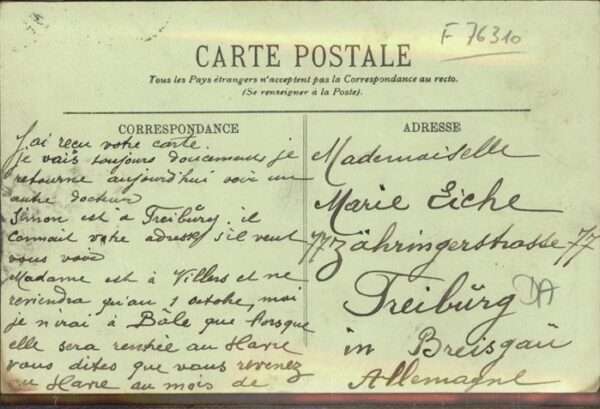 F 76310
CARTE POSTALE
Tous les Pays étrangers n'acceptent pas la Correspondance au recto.
(Se renseigner à la Poste).
CORRESPONDANCE
J'ai reçu votre carte.
je vais toujours doucement je
retourne aujourd'hui voir un
autre docteur
Simon est à Freibürg. il
connait votre adresse s'il veut
vous voir
Madame est à Villers et ne
reviendra qu'au 1 octobre, moi
je n'irai à Bâle que lorsque
elle sera rentrée au Havre
vous dites que vous revenez
au Havre au mois de
ADRESSE
Mademoiselle
Marie Eiche
77 Zähringerstrasse 77
Freibürg
in Breisgaü
Allemagne
DA